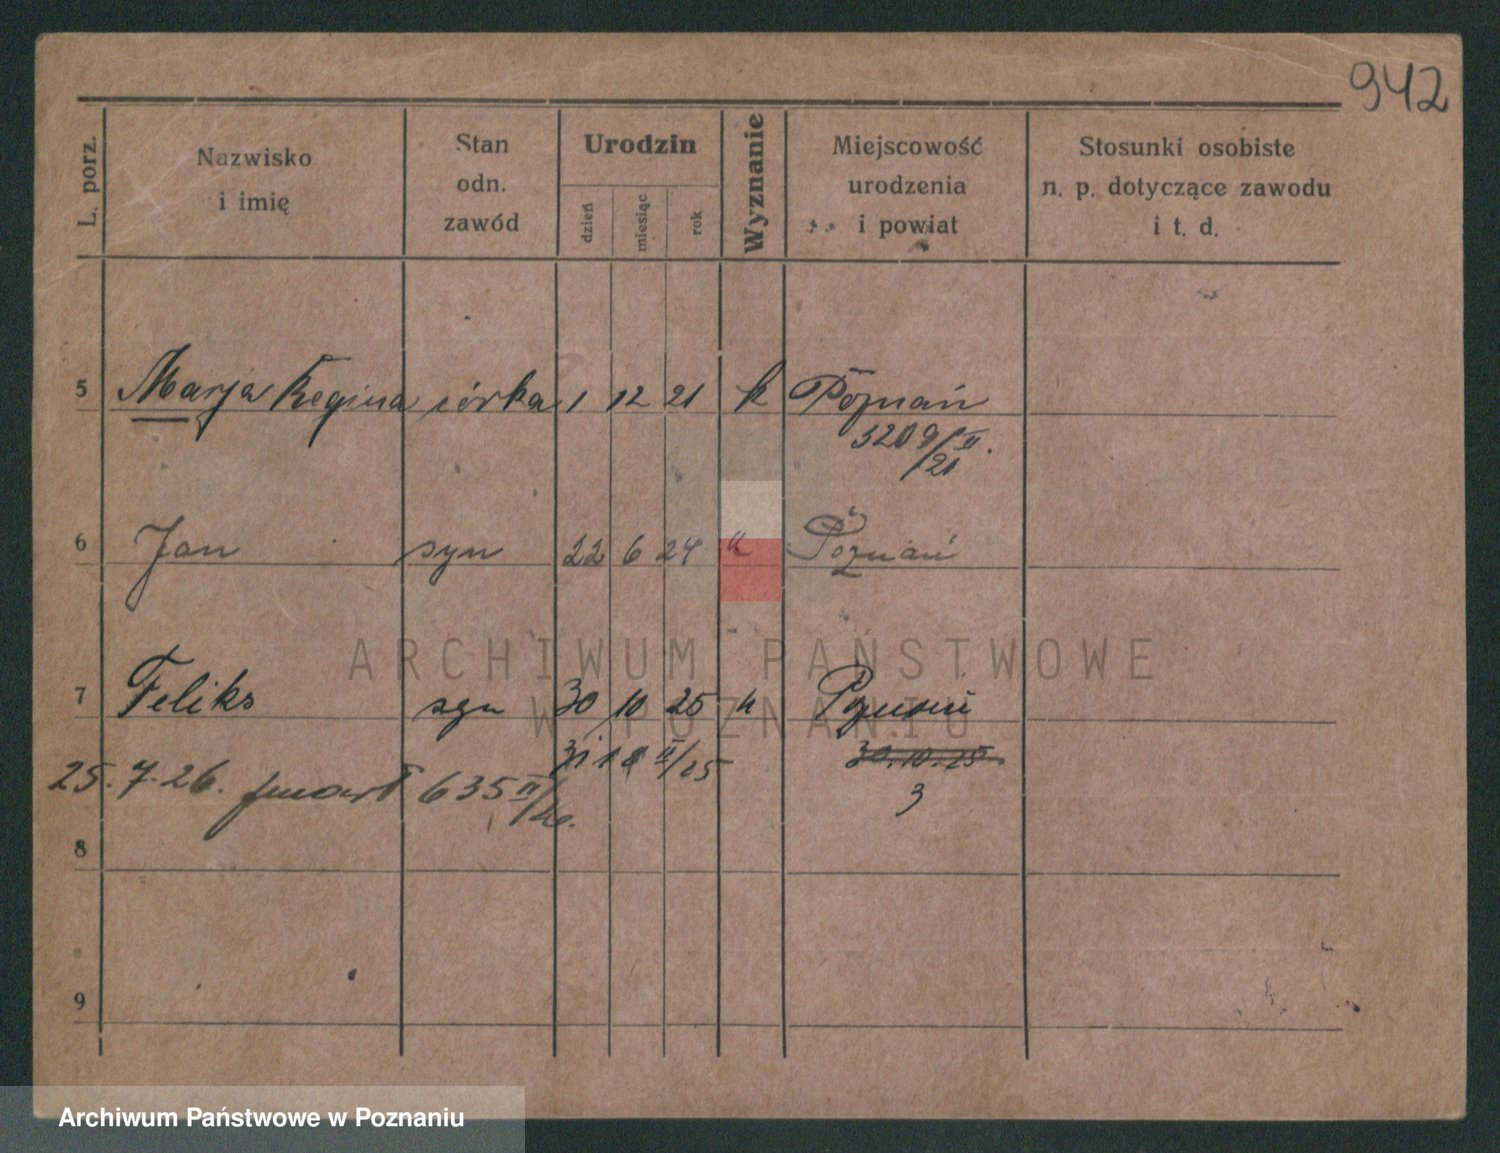 942
L. porz.
Nazwisko
i imię
Stan
odn.
zawód
Urodzin
dzień
miesiąc
rok
Wyznanie
Miejscowość
urodzenia
i powiat
Stosunki osobiste
n. p. dotyczące zawodu
i t. d.
5 Marja Regina córka 1 12 21 k Poznań
3209/II.
21
6 Jan syn 22 6 24 k Poznań
ARCHIWUM PAŃSTWOWE
W POZNANIU
7 Feliks syn 30 10 25 k Poznań
30.10.25
25.7.26. zmarł 635 II/26.
3
8
9
Archiwum Państwowe w Poznaniu